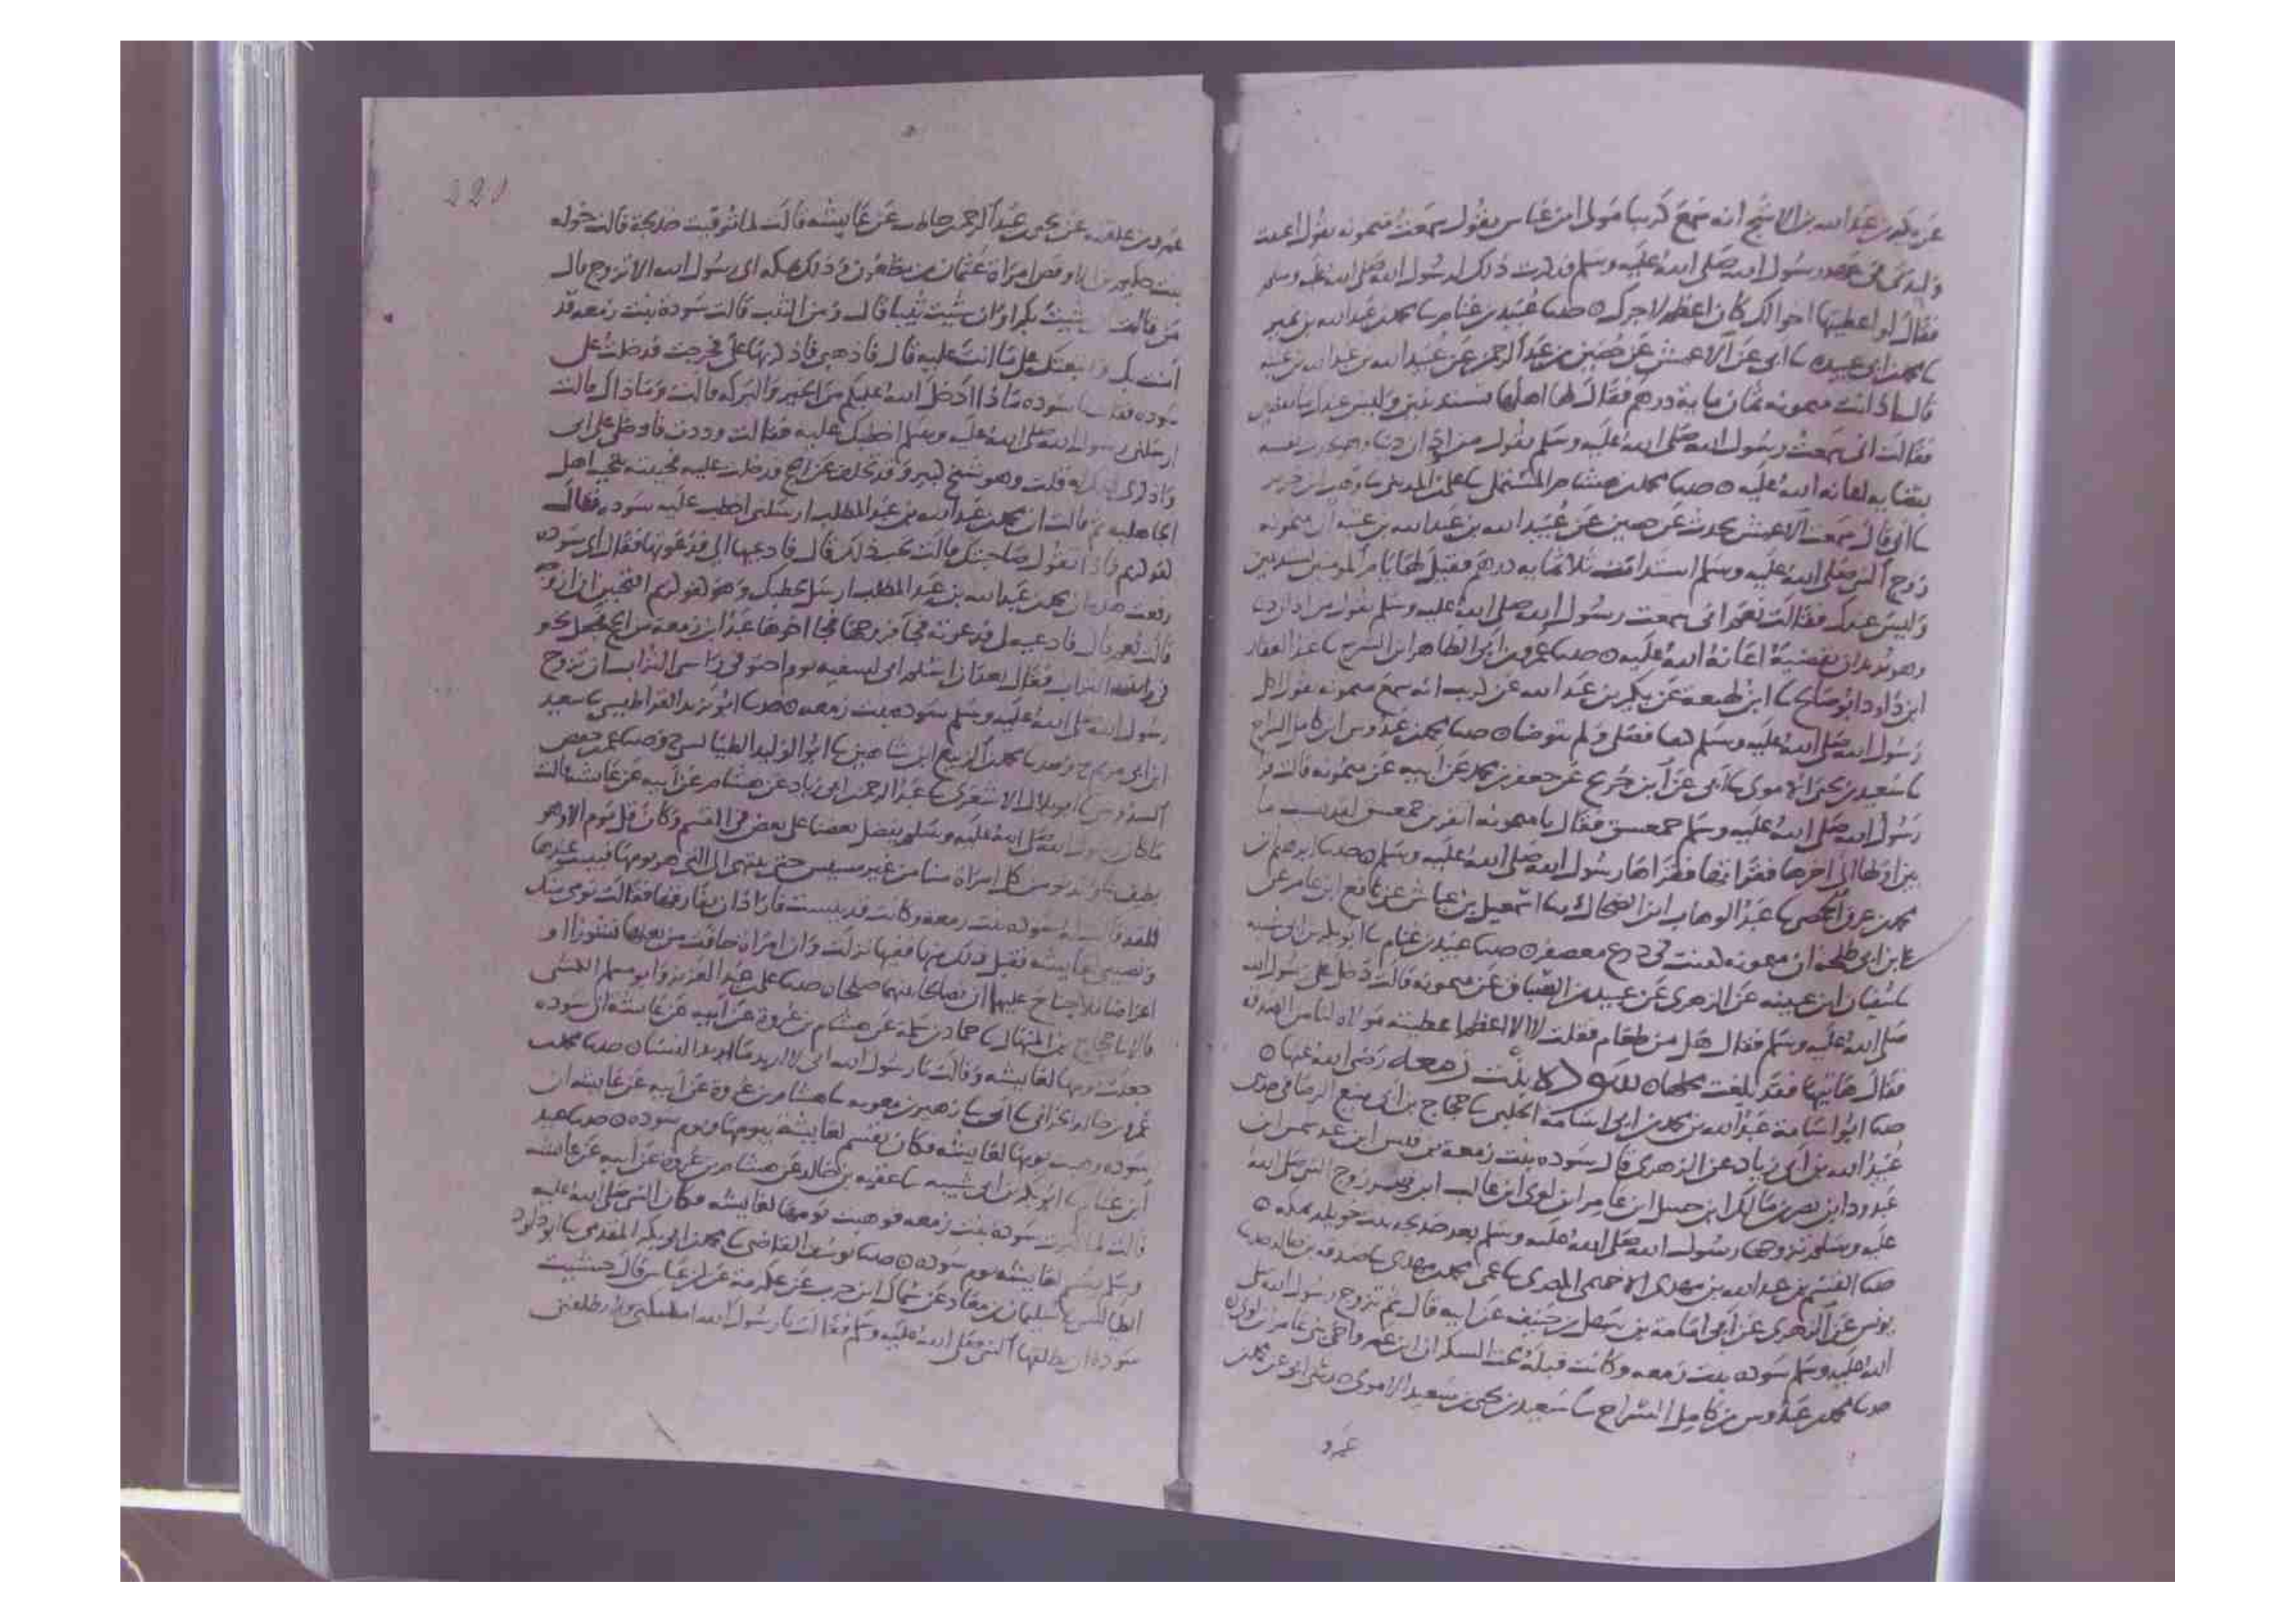 عن بكير بن عبد الله بن الاشج انه سمع كريبا مولى ابن عباس يقول سمعت ميمونه تقول اعتقت
وليدة في عهد رسول الله صلى الله عليه وسلم فذكرت ذلك لرسول الله صلى الله عليه وسلم
فقال لو اعطيتها اخوالك كان اعظم لاجرك حدثنا عبيد بن غنام ثنا محمد بن عبد الله بن نمير
ثنا محمد بن ابي عبيده ثنا ابي عن الاعمش عن حصين بن عبد الرحمن عن عبيد الله بن عبد الله بن عتبه
قال اذانت ميمونه ثمان مايه درهم فقال لها اهلها تستدينين وليس عندك ما تقضين
فقالت اني سمعت رسول الله صلى الله عليه وسلم يقول من اذان دينا وهو يحدث نفسه
بقضايه اعانه الله عليه حدثنا محمد بن هشام المستملي ثنا علي بن المديني ثنا وهب بن جرير
ثنا ابي قال سمعت الاعمش يحدث عن حصين عن عبيد الله بن عبد الله بن عتبه ان ميمونه
زوج النبي صلى الله عليه وسلم استدانت ثلاثمايه درهم فقيل لها يا ام المومنين تستدينين
وليس عندك فقالت نعم اني سمعت رسول الله صلى الله عليه وسلم يقول من اذان دينا
وهو يريد ان يقضيه اعانه الله عليه حدثنا عمرو بن ابي الطاهر ابن السرح ثنا عبد الغفار
ابن داود ابو صالح ثنا ابن لهيعة عن بكير بن عبد الله عن كريب انه سمع ميمونه تقول اكل
رسول الله صلى الله عليه وسلم فصلى ولم يتوضا حدثنا محمد بن عبدوس ابن كامل السراج
ثنا سعيد بن يحيى الاموي ثنا ابي عن ابن جريج عن جعفر بن محمد عن ابيه عن ميمونه قالت قرا
رسول الله صلى الله عليه وسلم حمعسق فقال يا ميمونه اتقرين حمعسق لقد نسيت ما
بين اولها الى اخرها فقراتها فقراها رسول الله صلى الله عليه وسلم حدثنا ابرهيم بن
محمد بن عرق الحمصي ثنا عبد الوهاب ابن الضحاك ثنا اسمعيل بن عياش عن نافع ابن عامر عن
ابن ابي طلحه ان ميمونه كفنت في درع معصفر حدثنا عبيد بن غنام ثنا ابو بكر بن ابي شيبه
ثنا سفيان ابن عيينه عن الزهري عن عبيد بن السباق عن ميمونه قالت دخل علي رسول الله
صلى الله عليه وسلم فقال هل من طعام فقلت لا الا اعظما اعطيته مولاة لنا من الصدقه
فقال هاتيها فقد بلغت محلها سودة بنت زمعه رضي الله عنها
حدثنا ابو اسامة عبد الله بن محمد بن ابي اسامة الحلبي ثنا حجاج بن ابي منيع الرصافي عن جدي
عبيد الله بن ابي زياد عن الزهري قال سوده بنت زمعه بن قيس ابن عبد شمس ابن
عبد ود ابن نصر بن مالك ابن حسل ابن عامر ابن لوي ابن غالب ابن فهر زوج النبي صلى الله
عليه وسلم تزوجها رسول الله صلى الله عليه وسلم بعد خديجه بنت خويلد بمكه
حدثنا القسم بن عبد الله بن مهدي الاخميمي المصري ثنا عمي محمد بن مهدي ثنا عنبسه بن خالد حدثنا
يونس عن الزهري عن ابي امامة بن سهل بن حنيف عن ابيه قال ثم تزوج رسول الله صلى
الله عليه وسلم سوده بنت زمعه وكانت قبله تحت السكران ابن عمرو اخي بني عامر بن لوي
حدثنا محمد بن عبدوس بن كامل السراج ثنا سعيد بن يحيى بن سعيد الاموي حدثني ابي عن محمد بن
عمرو
221
عمرو بن علقمه عن يحيى بن عبد الرحمن بن حاطب عن عايشه قالت لما توفيت خديجة قالت خوله
بنت حكيم بن الاوقص امراة عثمان بن مظعون وذلك بمكه اي رسول الله الا تزوج قال
من قالت ان شيت بكرا وان شيت ثيبا قال ومن الثيب قالت سودة بنت زمعه قد
امنت بك واتبعتك على ما انت عليه قال فاذهبي فاذكريها علي فخرجت فدخلت على
سوده فقلت يا سوده ماذا ادخل الله عليكم من الخير والبركه قالت وما ذاك قالت
ارسلني رسول الله صلى الله عليه وسلم اخطبك عليه فقالت وددت فادخلي على ابي
واذكري ذلك له قلت وهو شيخ كبير وقد تخلف عن الحج فدخلت عليه فحييته بتحية اهل
الجاهليه ثم قالت ان محمد بن عبد الله بن عبد المطلب ارسلني اخطب عليه سوده فقال
كفو كريم فماذا تقول صاحبتك قالت تحب ذلك قال فادعيها الي فدعوتها فقال اي سوده
زعمت هذه ان محمد بن عبد الله بن عبد المطلب ارسل يخطبك وهو كفو كريم اتحبين ان ازوجك
قالت نعم قال فادعيه لي فدعوته فجا فزوجها فجا اخوها عبد ابن زمعه من الحج فجعل يحثو
في راسه التراب فقال بعد ان اسلم اني لسفيه يوم احثو في راسي التراب ان تزوج
رسول الله صلى الله عليه وسلم سوده بنت زمعه حدثنا ابو يزيد القراطيسي ثنا سعيد
ابن ابي مريم ح وحدثنا محمد بن الربيع ابن شاهين ثنا ابو الوليد الطيالسي ح وحدثنا عمر بن حفص
السدوسي ثنا ابو بلال الاشعري ثنا عبد الرحمن بن ابي زياد عن هشام عن ابيه عن عايشه قالت
ما كان رسول الله صلى الله عليه وسلم يفضل بعضنا على بعض في القسم وكان قل يوم الا وهو
يطوف علينا يدنو من كل امراة منا من غير مسيس حتى ينتهي الى التي هو يومها فيبيت عندها
ولقد قالت له سوده بنت زمعه وكانت قد يبست فاراد ان يفارقها فقالت يومي منك
ونصيبي لعايشه فقبل ذلك منها ففيها نزلت وان امراة خافت من بعلها نشوزا او
اعراضا فلا جناح عليهما ان يصالحا بينهما صلحا حدثنا علي بن عبد العزيز وابو مسلم الكشي
قالا ثنا حجاج بن المنهال ثنا حماد بن سلمة عن هشام بن عروة عن ابيه عن عايشة ان سوده
جعلت يومها لعايشه وقالت يا رسول الله اني لا اريد ما تريد النسا حدثنا محمد بن
عمرو بن خالد الحراني ثنا ابي ثنا زهير بن معويه ثنا هشام بن عروة عن ابيه عن عايشه ان
سوده وهبت يومها لعايشه فكان يقسم لعايشة بيومها ويوم سوده حدثنا عبيد
ابن غنام ثنا ابو بكر بن ابي شيبه ثنا عقبه بن خالد عن هشام بن عروة عن ابيه عن عايشه
قالت لما كبرت سوده بنت زمعه فوهبت يومها لعايشه فكان النبي صلى الله عليه
وسلم يقسم لعايشه يوم سوده حدثنا يوسف القاضي ثنا محمد بن ابي بكر المقدمي ثنا ابو داود
الطيالسي ثنا سليمان بن معاذ عن سماك ابن حرب عن عكرمة عن ابن عباس قال خشيت
سودة ان يطلقها النبي صلى الله عليه وسلم فقالت يا رسول الله امسكني ولا تطلقني